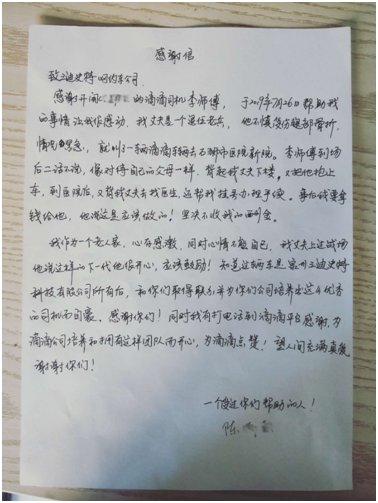 感谢信
致迪史特网约车公司
感谢开闽C 的滴滴司机李师傅,于2019年7月26日帮助我
的事情让我作感动,我丈夫是个退伍老兵,他不慎受伤腿部骨折,
情况紧急,就叫了一辆滴滴车辆去石狮市医院新院。李师傅到场
后二话不说,像对待自己的父母一样,背起我丈夫下楼。又把他抱上
车,到医院后,又背我丈夫去找医生,还帮我挂号办理手续。事后我要拿
钱给他,他说这是应该做的!坚决不收我的酬金。
我作为一个老人家,心存感激,同时心情不能自己,我丈夫上过战场
他说这样的下一代他很开心,应该鼓励!知道这辆车是泉州迪史特
科技有限公司所有后,和你们取得联系并为你们公司培养出这么优秀
的司机而自豪。感谢你们!同时我有打电话到滴滴平台感谢,为
滴滴公司培养和拥有这样团队而开心,为滴滴点赞!望人间充满真爱
谢谢你们!
一个受过你们帮助的人!
陈